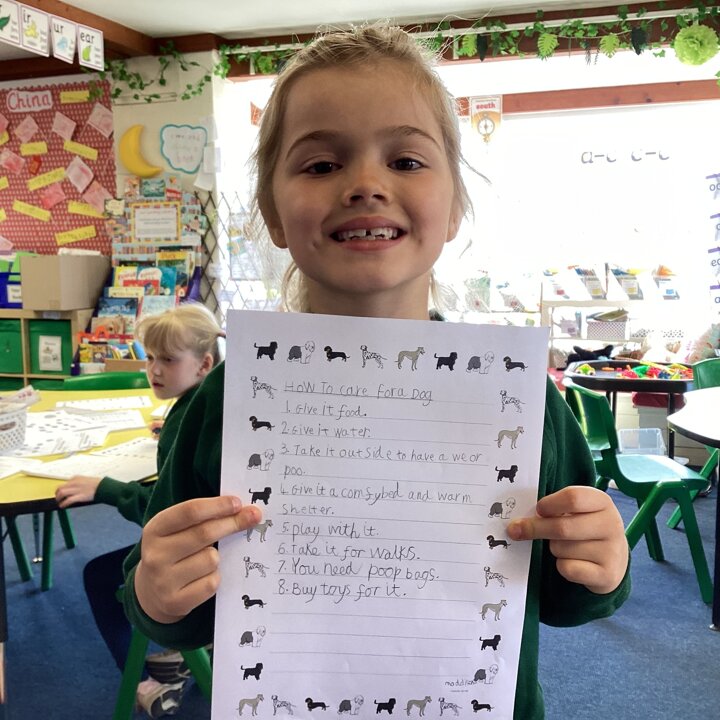 ur
ear
China
south
a-e e-e
HOW TO care for a DOG
1. Give it food.
2. Give it water.
3. Take it outside to have a wee or
poo.
4. Give it a comfy bed and warm
Shelter.
5. play with it.
6. Take it for walks.
7. You need poop bags.
8. Buy toys for it.